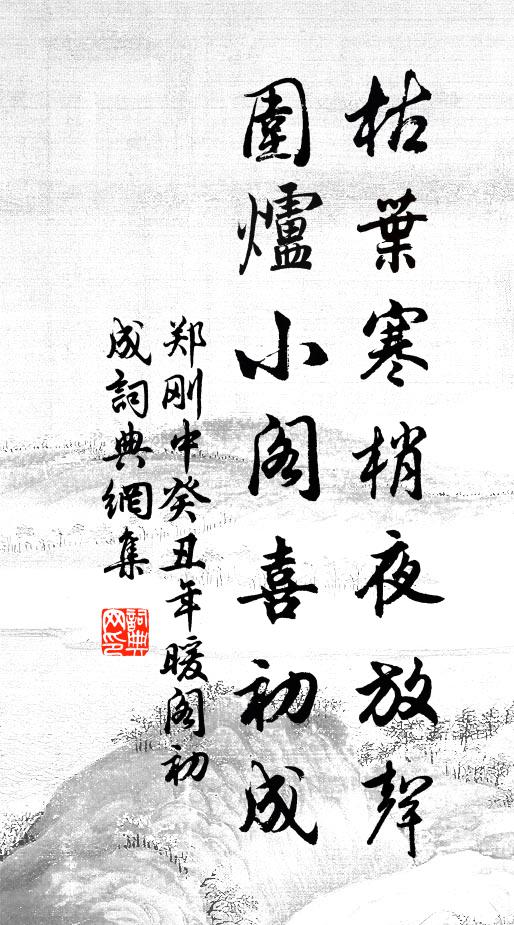 枯葉寒梢夜放聲
圍爐小阁喜初成
郑刚中癸丑年暖阁初
成詞典網集
詞典网印